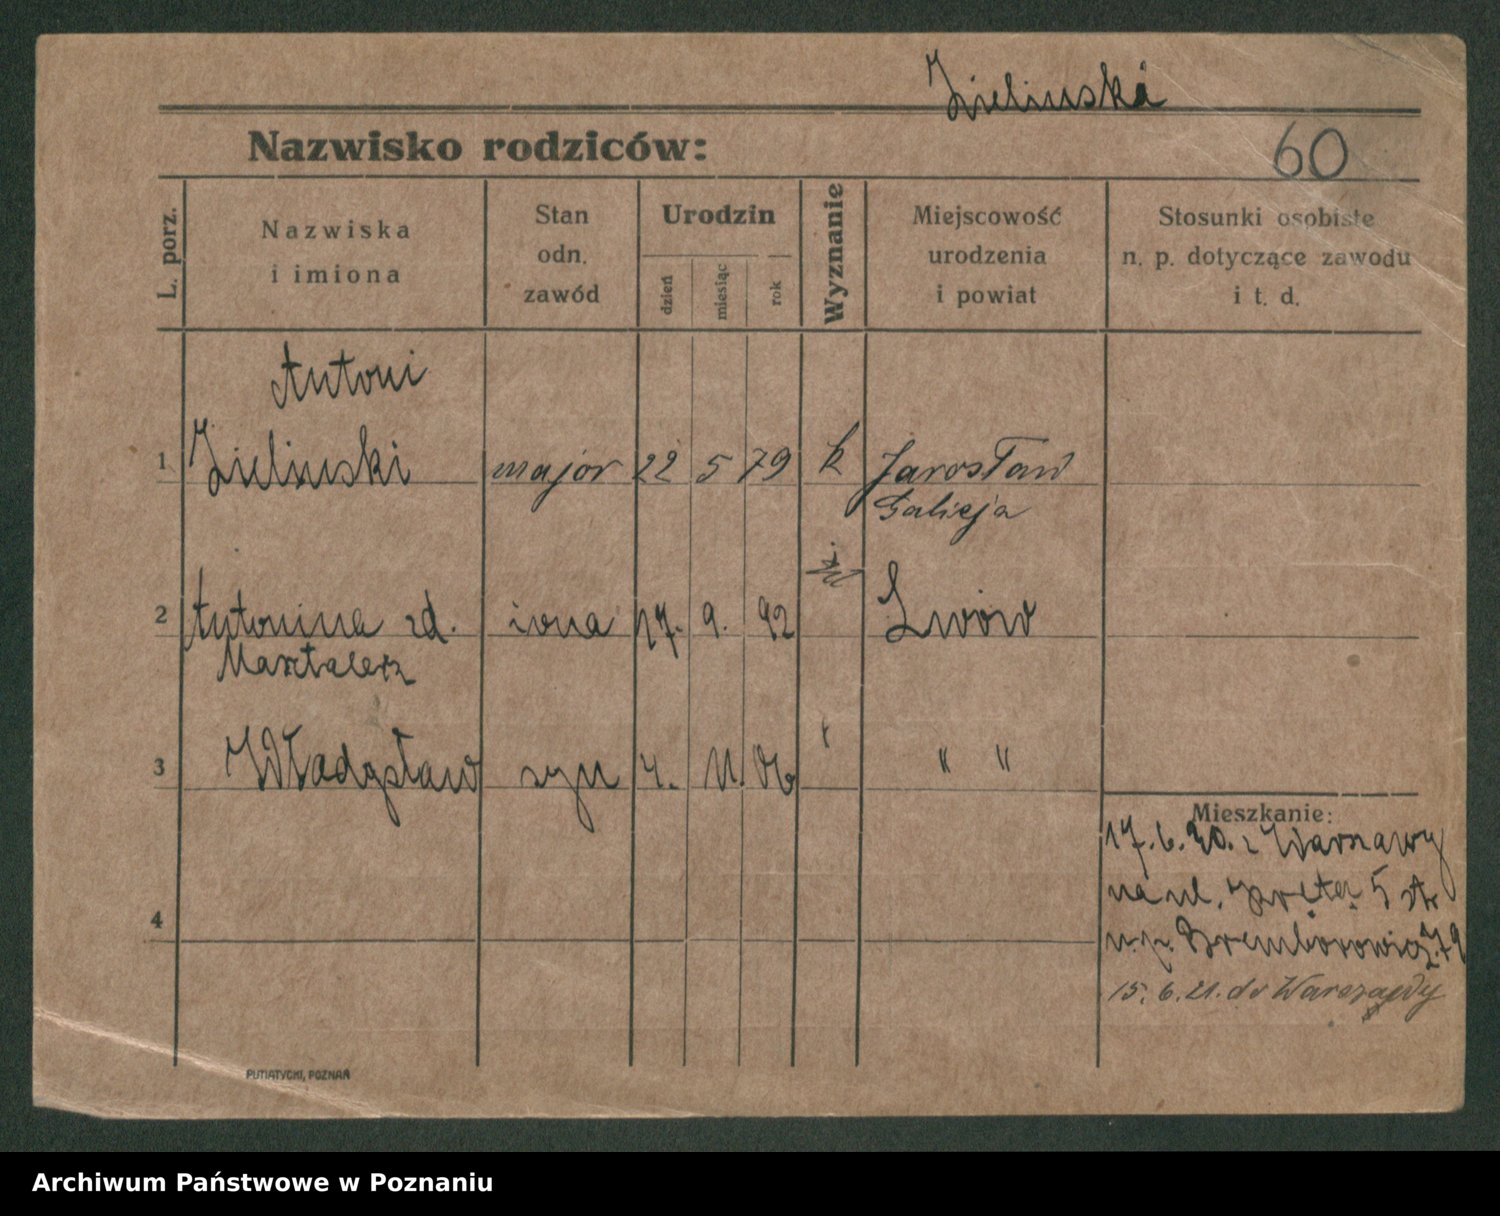 Zielinski
Nazwisko rodziców:
60
L. porz.
Nazwiska
i imiona
Stan
odn.
zawód
Urodzin
dzień
miesiąc
rok
Wyznanie
Miejscowość
urodzenia
i powiat
Stosunki osobiste
n. p. dotyczące zawodu
i t. d.
Antoni
1 Zielinski major 22 5 79 k Jarosław
Galicja
2 Antonina zd. żona 17. 9. 92 Lwów
Marxtalerz
3 Władysław syn 4. 11. 06 " "
Mieszkanie:
17. 6. 20. z Warszawy
na ul. 5
u p.
4
15. 6. 21. do Warszawy
PUTIATYCKI, POZNAŃ
Archiwum Państwowe w Poznaniu